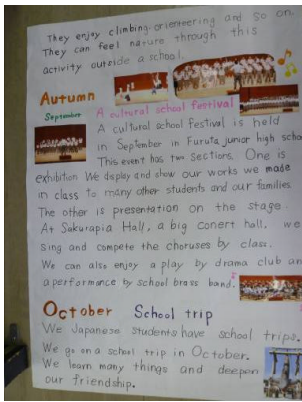 They enjoy climbing. orienteering and so on.
They can feel nature through this
activity outside a school.
Autumn
September
A cultural school festival
A cultural school festival is held
in September in Furuta junior high school
This event has two sections. One is
exhibition We display and show our works we made
in class to many other students and our families
The other is presentation on the stage.
At Sakurapia Hall, a big conert hall. we
sing and compete the choruses by class.
We can also enjoy a play by drama club and
a performance by school brass band.
October School trip
We Japanese students have school trips.
We go on a school trip in October.
We learn many things and deepen
our friendship.